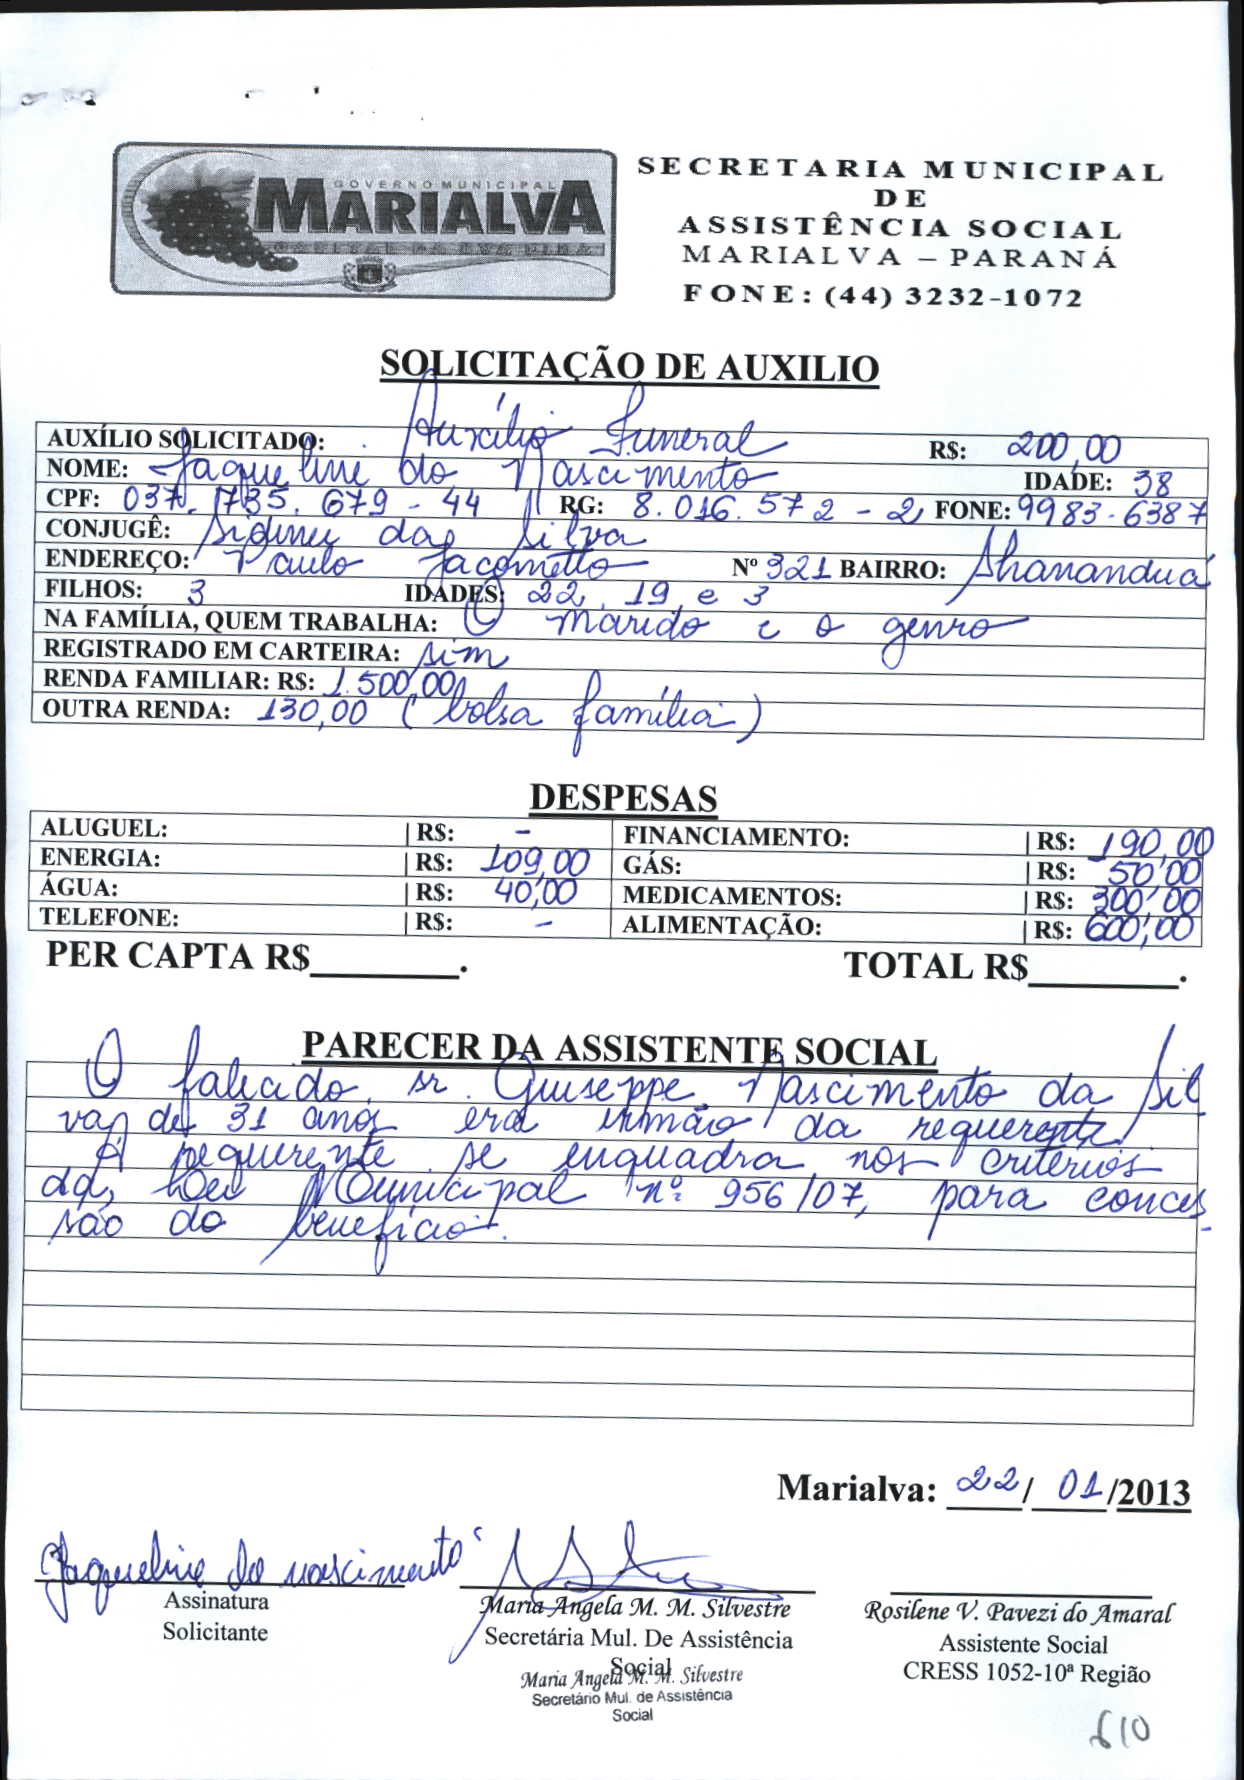 GOVERNO MUNICIPAL
MARIALVA
CAPITAL DA UVA FINA
SECRETARIA MUNICIPAL
DE
ASSISTÊNCIA SOCIAL
MARIALVA – PARANÁ
FONE: (44) 3232-1072
SOLICITAÇÃO DE AUXILIO
AUXÍLIO SOLICITADO: Auxílio Funeral R$: 200,00
NOME: Jaqueline do Nascimento IDADE: 38
CPF: 037.735.679-44 RG: 8.016.572-2 FONE: 9983-6387
CONJUGÊ: Sidiney da Silva
ENDEREÇO: Paulo Jacometto Nº 321 BAIRRO: Shananduá
FILHOS: 3 IDADES: 22, 19 e 3
NA FAMÍLIA, QUEM TRABALHA: O marido e o genro
REGISTRADO EM CARTEIRA: sim
RENDA FAMILIAR: R$: 1.500,00
OUTRA RENDA: 130,00 (bolsa família)
DESPESAS
ALUGUEL: R$: – FINANCIAMENTO: R$: 190,00
ENERGIA: R$: 109,00 GÁS: R$: 50,00
ÁGUA: R$: 40,00 MEDICAMENTOS: R$: 300,00
TELEFONE: R$: – ALIMENTAÇÃO: R$: 600,00
PER CAPTA R$________. TOTAL R$________.
PARECER DA ASSISTENTE SOCIAL
O falecido, sr. Giuseppe Nascimento da Sil
va, de 31 anos era irmão da requerente.
A requerente se enquadra nos critérios
da Lei Municipal nº 956/07, para conces
são do benefício.
Marialva: 22/ 01/2013
Jaqueline do nascimento
Assinatura
Solicitante
Maria Angela M. M. Silvestre
Secretária Mul. De Assistência
Social
Maria Angela M. M. Silvestre
Secretário Mul. de Assistência
Social
Rosilene V. Pavezi do Amaral
Assistente Social
CRESS 1052-10ª Região
610